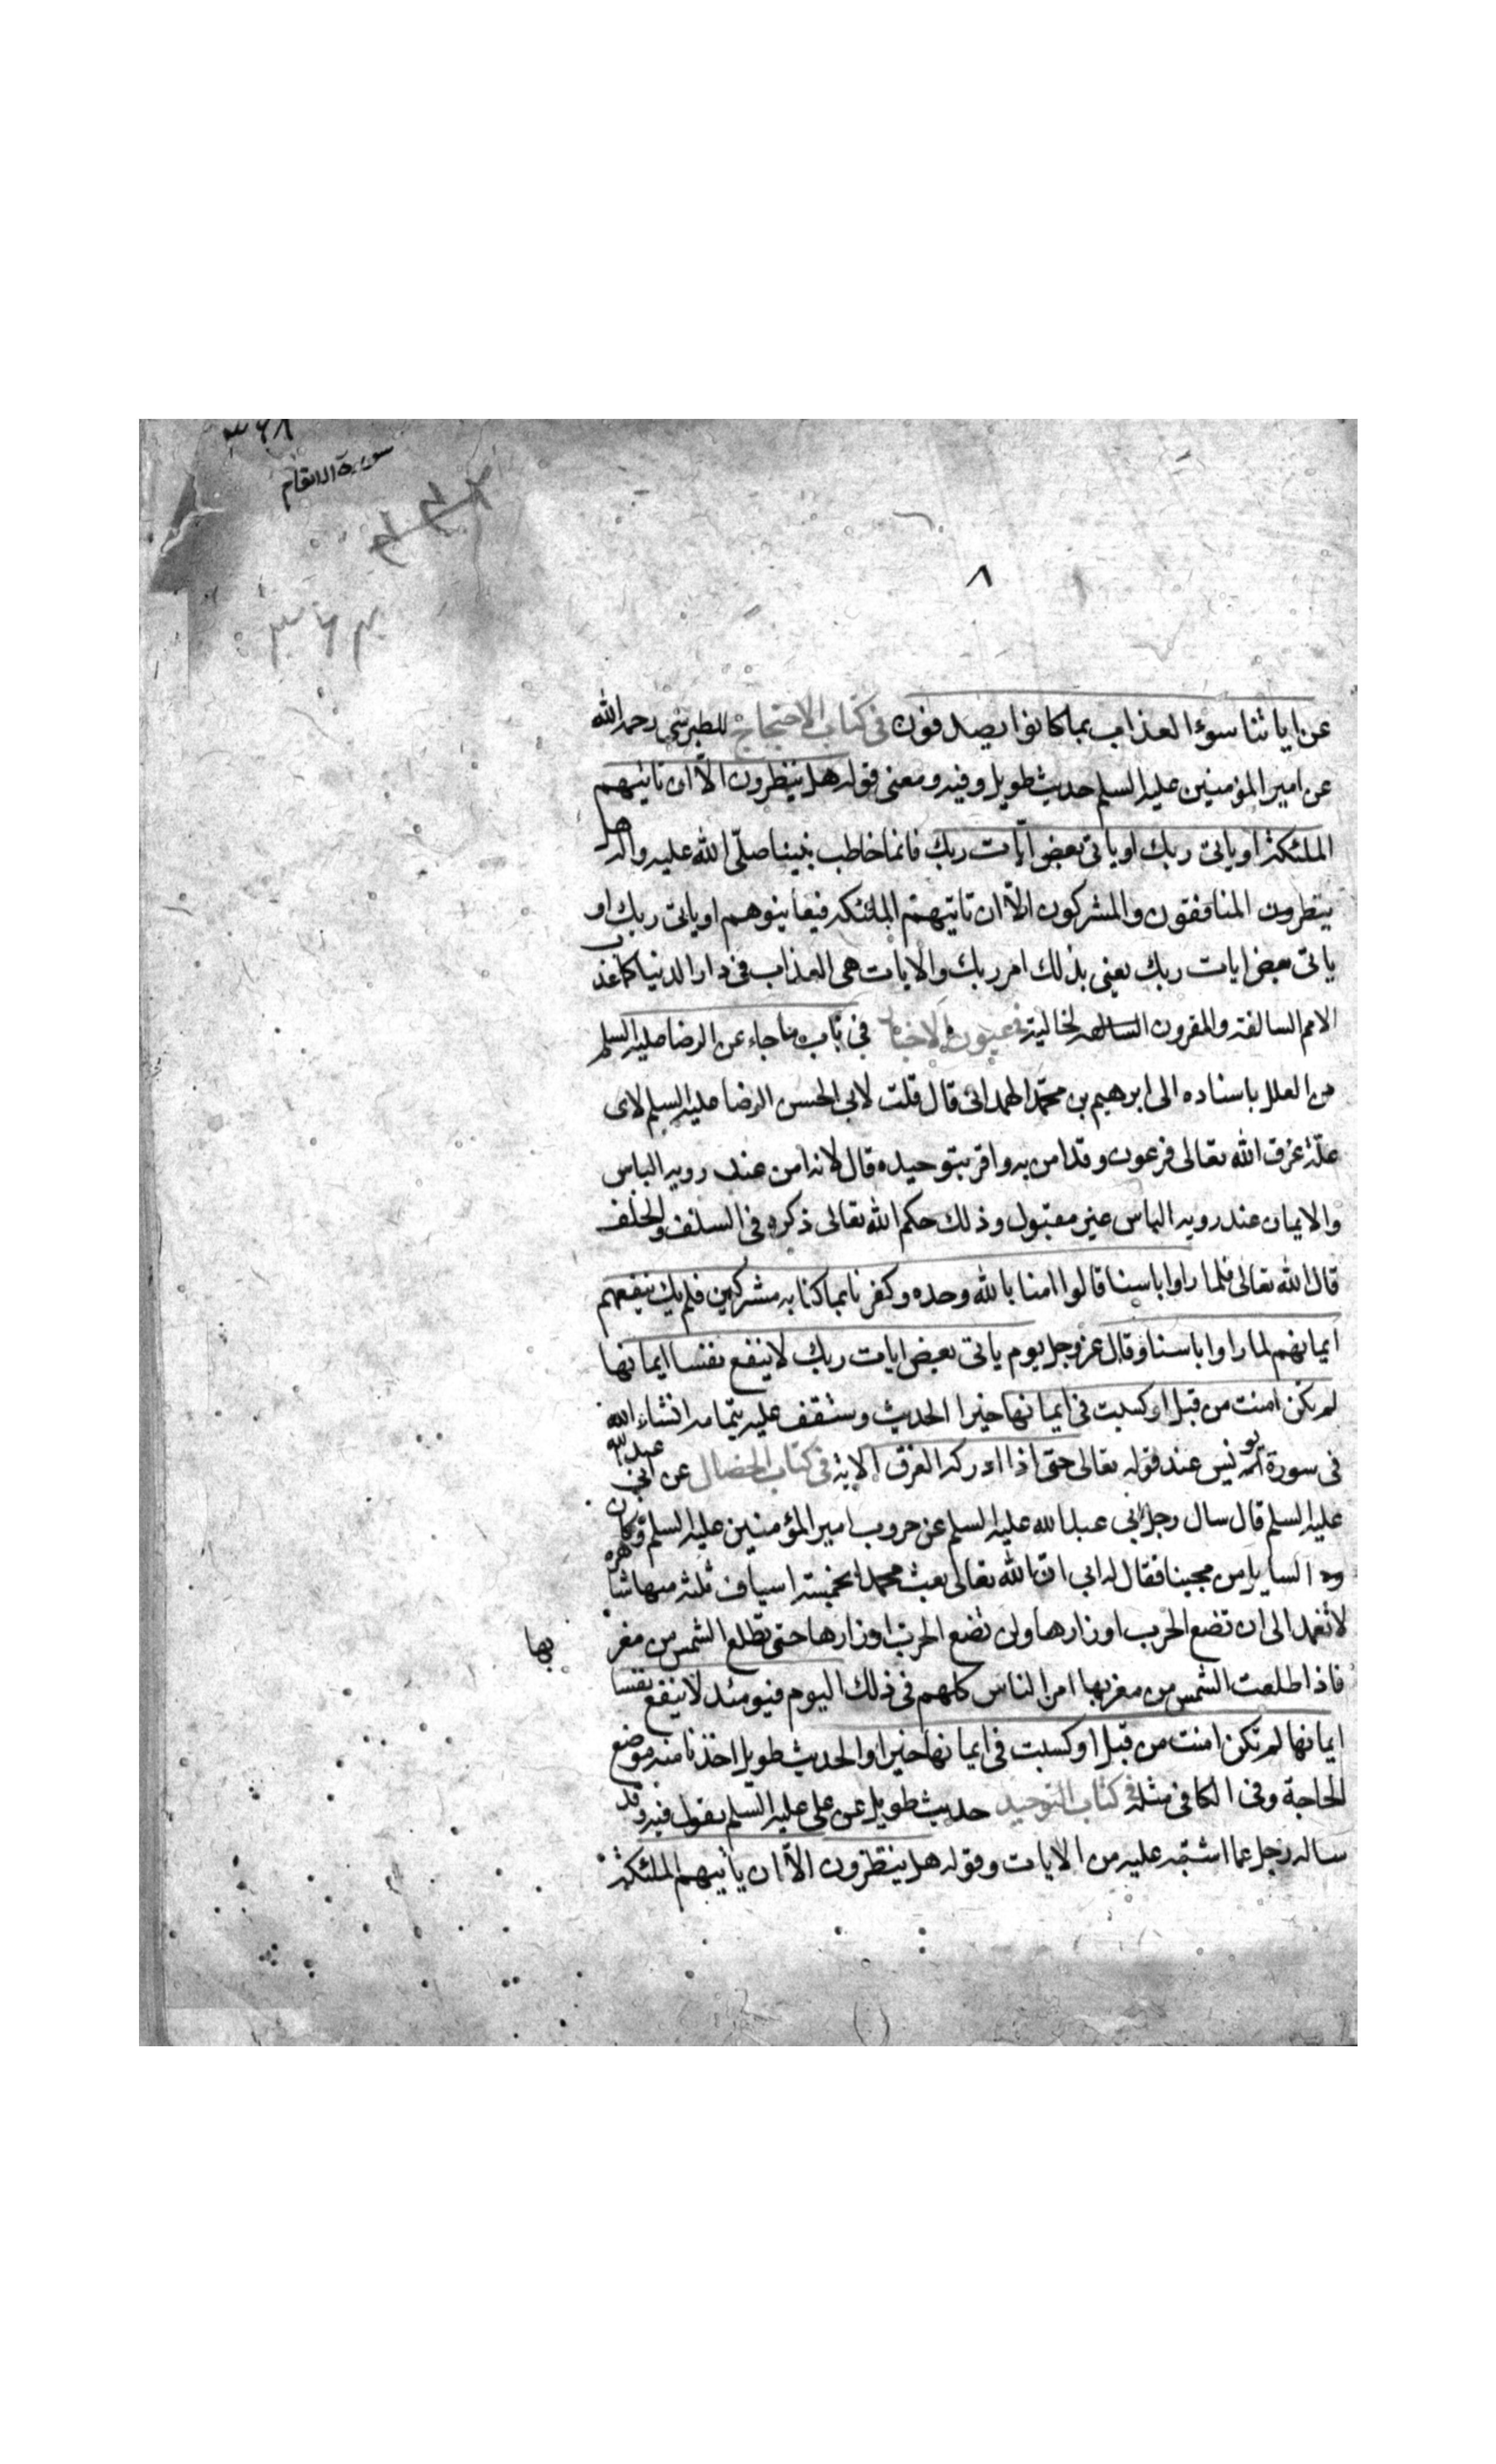 سورة الانعام
٨
عن اياتنا سوء العذاب بما كانوا يصدفون في كتاب الاحتجاج للطبرسي رحمه الله
عن امير المؤمنين عليه السلم حديث طويل وفيه ومعنى قوله هل ينظرون الّا ان تاتيهم
الملئكة او ياتى ربك او ياتى بعض ايات ربك فانما خاطب نبينا صلّى الله عليه واله هل
ينظرون المنافقون والمشركون الّا ان تاتيهم الملئكه فيعاينوهم او ياتى ربك او
ياتى بعض ايات ربك يعنى بذلك امر ربك والايات هى العذاب فى دار الدنيا كما عذب
الامم السالفة والقرون الخالية فى عيون الاخبار في باب ما جاء عن الرضا عليه السلم
من العلل باسناده الى ابرهيم بن محمّد الهمدانى قال قلت لابى الحسن الرضا عليه السلم لاى
علّة غرق الله تعالى فرعون وقد امن به واقر بتوحيده قال لانه امن عند رويه الباس
والايمان عند رويه الباس غير مقبول وذلك حكم الله تعالى ذكره فى السلف والخلف
قال الله تعالى فلما راوا باسنا قالوا امنا بالله وحده وكفرنا بما كنا به مشركين فلم يك ينفعهم
ايمانهم لما راوا باسنا وقال عز وجل يوم ياتى بعض ايات ربك لا ينفع نفسا ايمانها
لم تكن امنت من قبل او كسبت فى ايمانها خيرا الحديث وستقف عليه بتمامه انشاء الله
فى سورة يونس عند قوله تعالى حتى اذا ادركه الغرق الاية فى كتاب الخصال عن ابى عبد الله
عليه السلم قال سال رجل ابي عبد الله عليه السلم عن حروب امير المؤمنين عليه السلم وكان
السايل من محبينا فقال له ابي ان الله تعالى بعث محمدا بخمسة اسياف ثلثه منها شاهره
لا تغمد الى ان تضع الحرب اوزارها ولن تضع الحرب اوزارها حتى تطلع الشمس من مغر
بها
فاذا طلعت الشمس من مغربها امن الناس كلهم فى ذلك اليوم فيومئذ لا ينفع نفسا
ايمانها لم تكن امنت من قبل او كسبت فى ايمانها خيرا والحديث طويل اخذنا منه موضع
الحاجة وفى الكافى مثله فى كتاب التوحيد حديث طويل عن على عليه السلم يقول فيه وقد
ساله رجل عما اشتبه عليه من الايات وقوله هل ينظرون الّا ان ياتيهم الملئكة